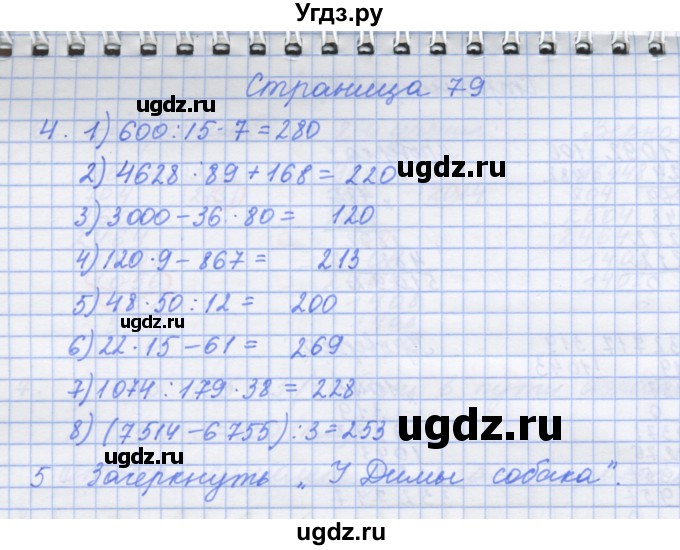 Угдз.ру
Страница 79
4. 1) 600 : 15 · 7 = 280
2) 4628 : 89 + 168 = 220
3) 3000 − 36 · 80 = 120
4) 120 · 9 − 867 = 213
5) 48 · 50 : 12 = 200
6) 22 · 15 − 61 = 269
7) 1074 : 179 · 38 = 228
8) (7514 − 6755) : 3 = 253
5 Зачеркнуть „У Димы собака".
ugdz.ru
ugdz.ru
ugdz.ru
ugdz.ru
ugdz.ru
ugdz.ru
ugdz.ru
ugdz.ru